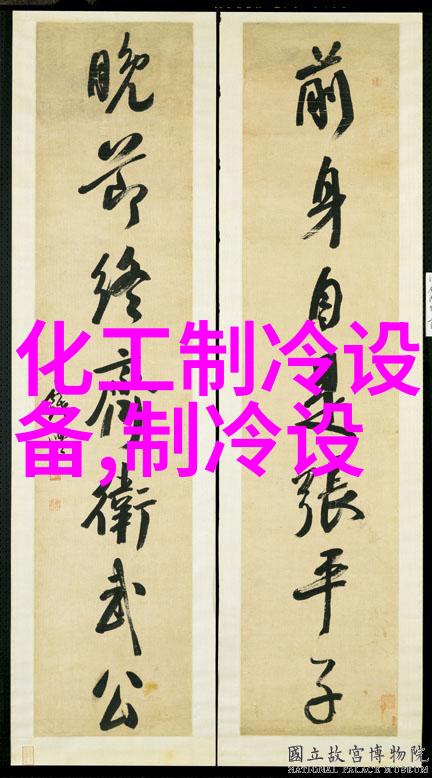 前身自是張平子
晚節終齊衛武公
化工制冷设
备,制冷设
國立故宮博物院
NATIONAL PALACE MUSEUM